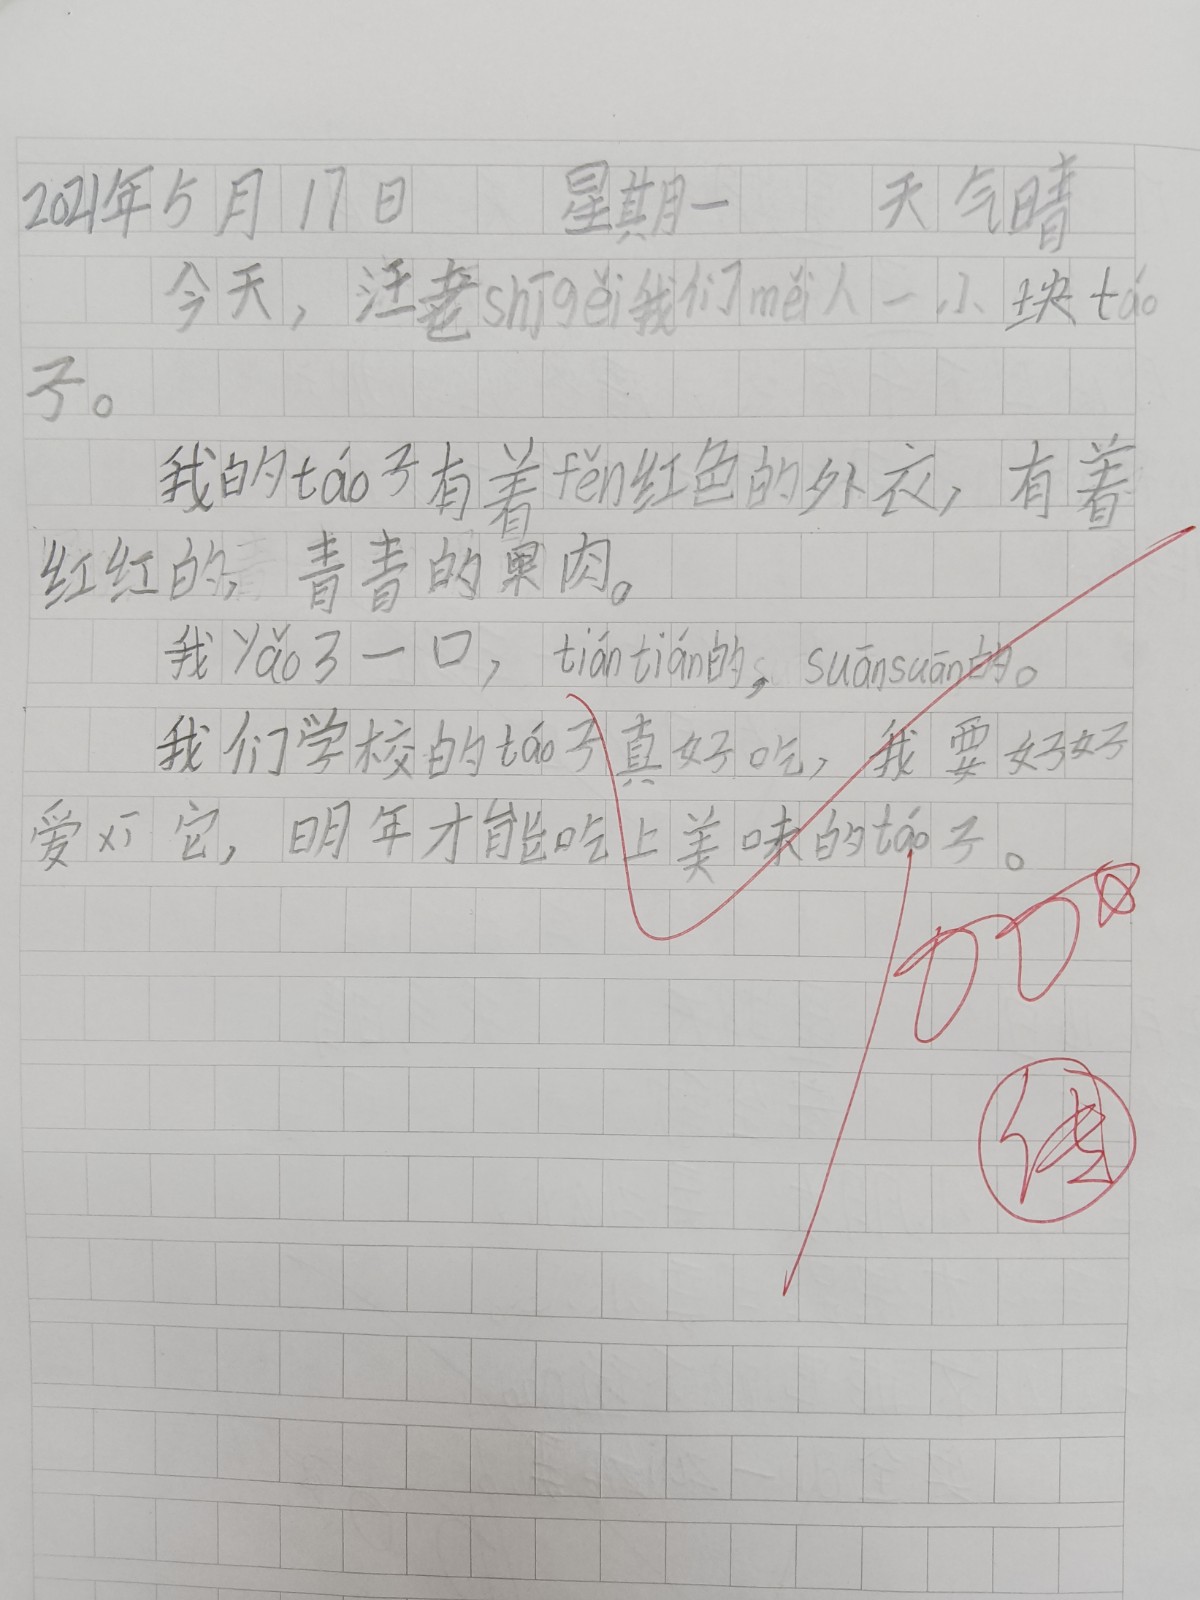 2021年5月17日 星期一 天气晴
今天，汪老shīgěi我们měi人一小块táo
子。
我的táo子有着fěn红色的外衣，有着
红红的，青青的果肉。
我yǎo了一口，tiántián的，suānsuān的。
我们学校的táo子真好吃，我要好好
爱对它，明年才能吃上美味的táo子。
100☆
传